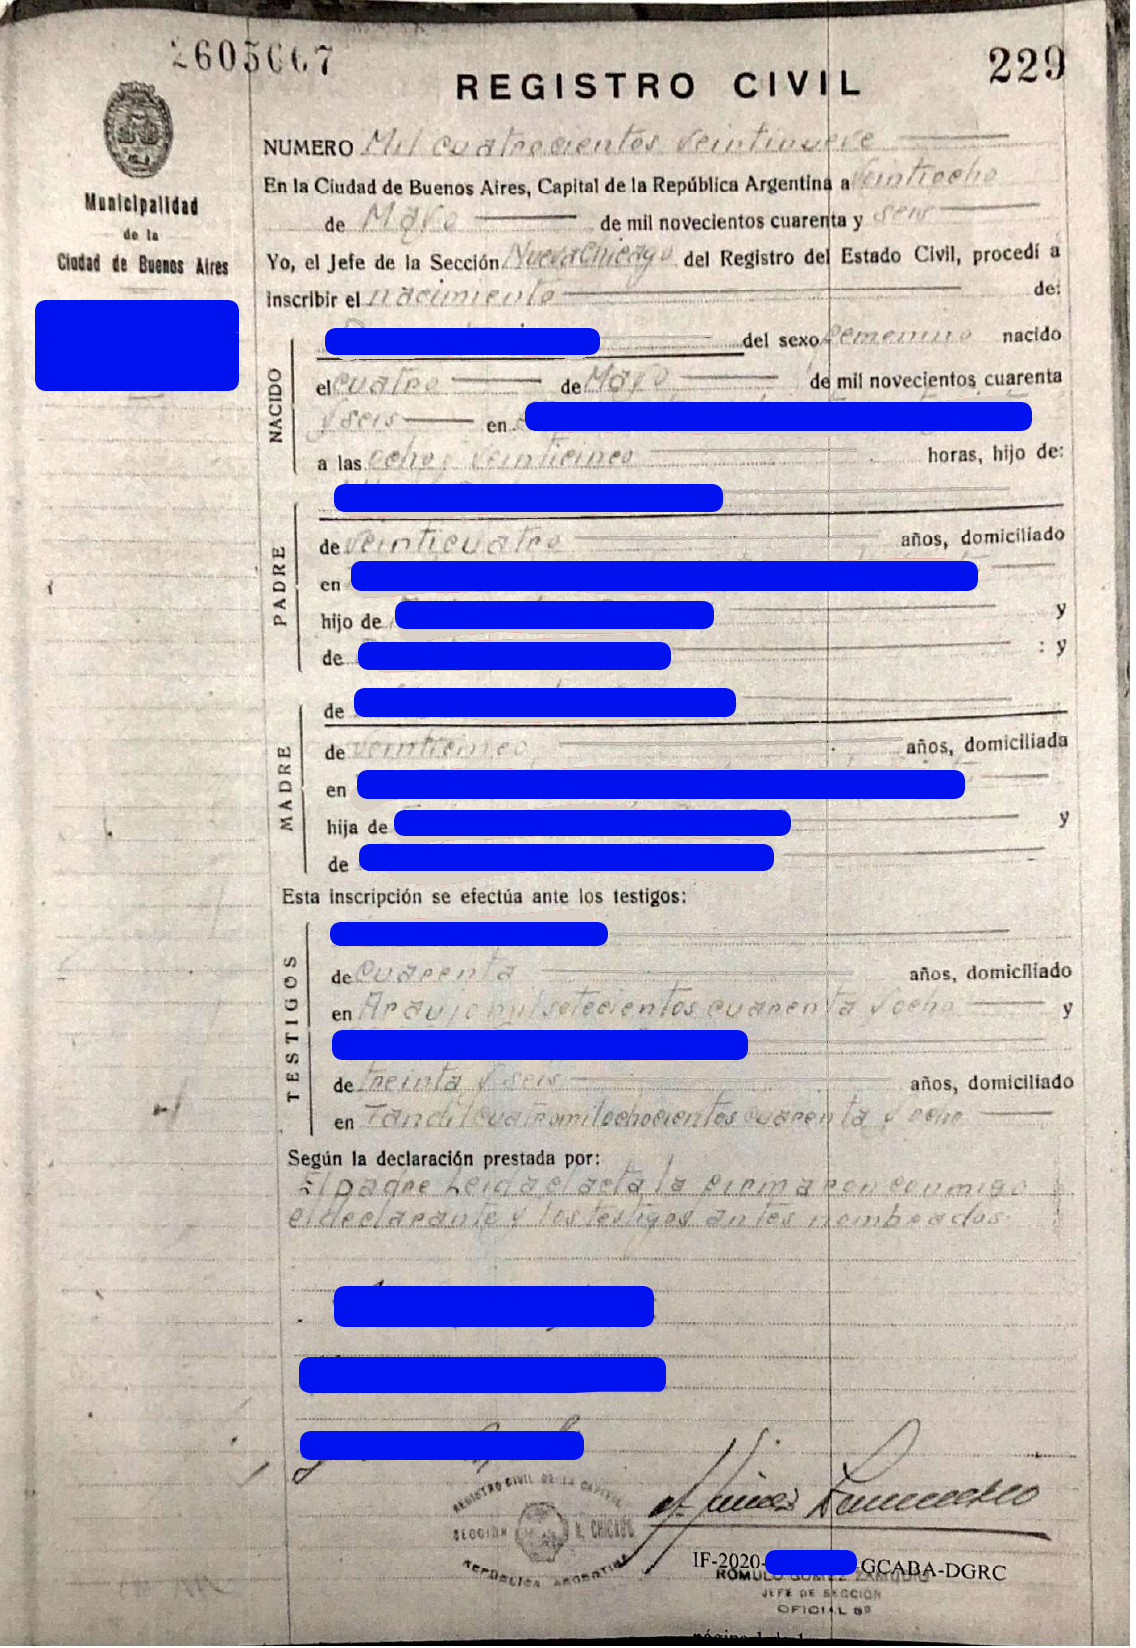 2605667
229
REGISTRO CIVIL
Municipalidad
de la
Ciudad de Buenos Aires
NUMERO Mil cuatrocientos veintinueve
En la Ciudad de Buenos Aires, Capital de la República Argentina a veintiocho
de Mayo de mil novecientos cuarenta y seis
Yo, el Jefe de la Sección Nueva Chicago del Registro del Estado Civil, procedí a
inscribir el nacimiento de:
NACIDO
del sexo femenino nacido
el cuatro de Mayo de mil novecientos cuarenta
y seis en
a las ocho y veinticinco horas, hijo de:
PADRE
de veinticuatro años, domiciliado
en
hijo de y
de : y
MADRE
de
de veinticinco años, domiciliada
en
hija de y
de
Esta inscripción se efectúa ante los testigos:
TESTIGOS
de cuarenta años, domiciliado
en Araujo mil setecientos cuarenta y ocho y
de treinta y seis años, domiciliado
en Tandil cuatro mil ochocientos cuarenta y ocho
Según la declaración prestada por:
El padre Leida el acta la firmaron conmigo
el declarante y los testigos antes nombrados.
REGISTRO CIVIL DE LA CAPITAL
SECCIÓN N. CHICAGO
REPUBLICA ARGENTINA
IF-2020- -GCABA-DGRC
ROMULO GOMEZ
JEFE DE SECCION
OFICIAL 5º
página 1 de 1